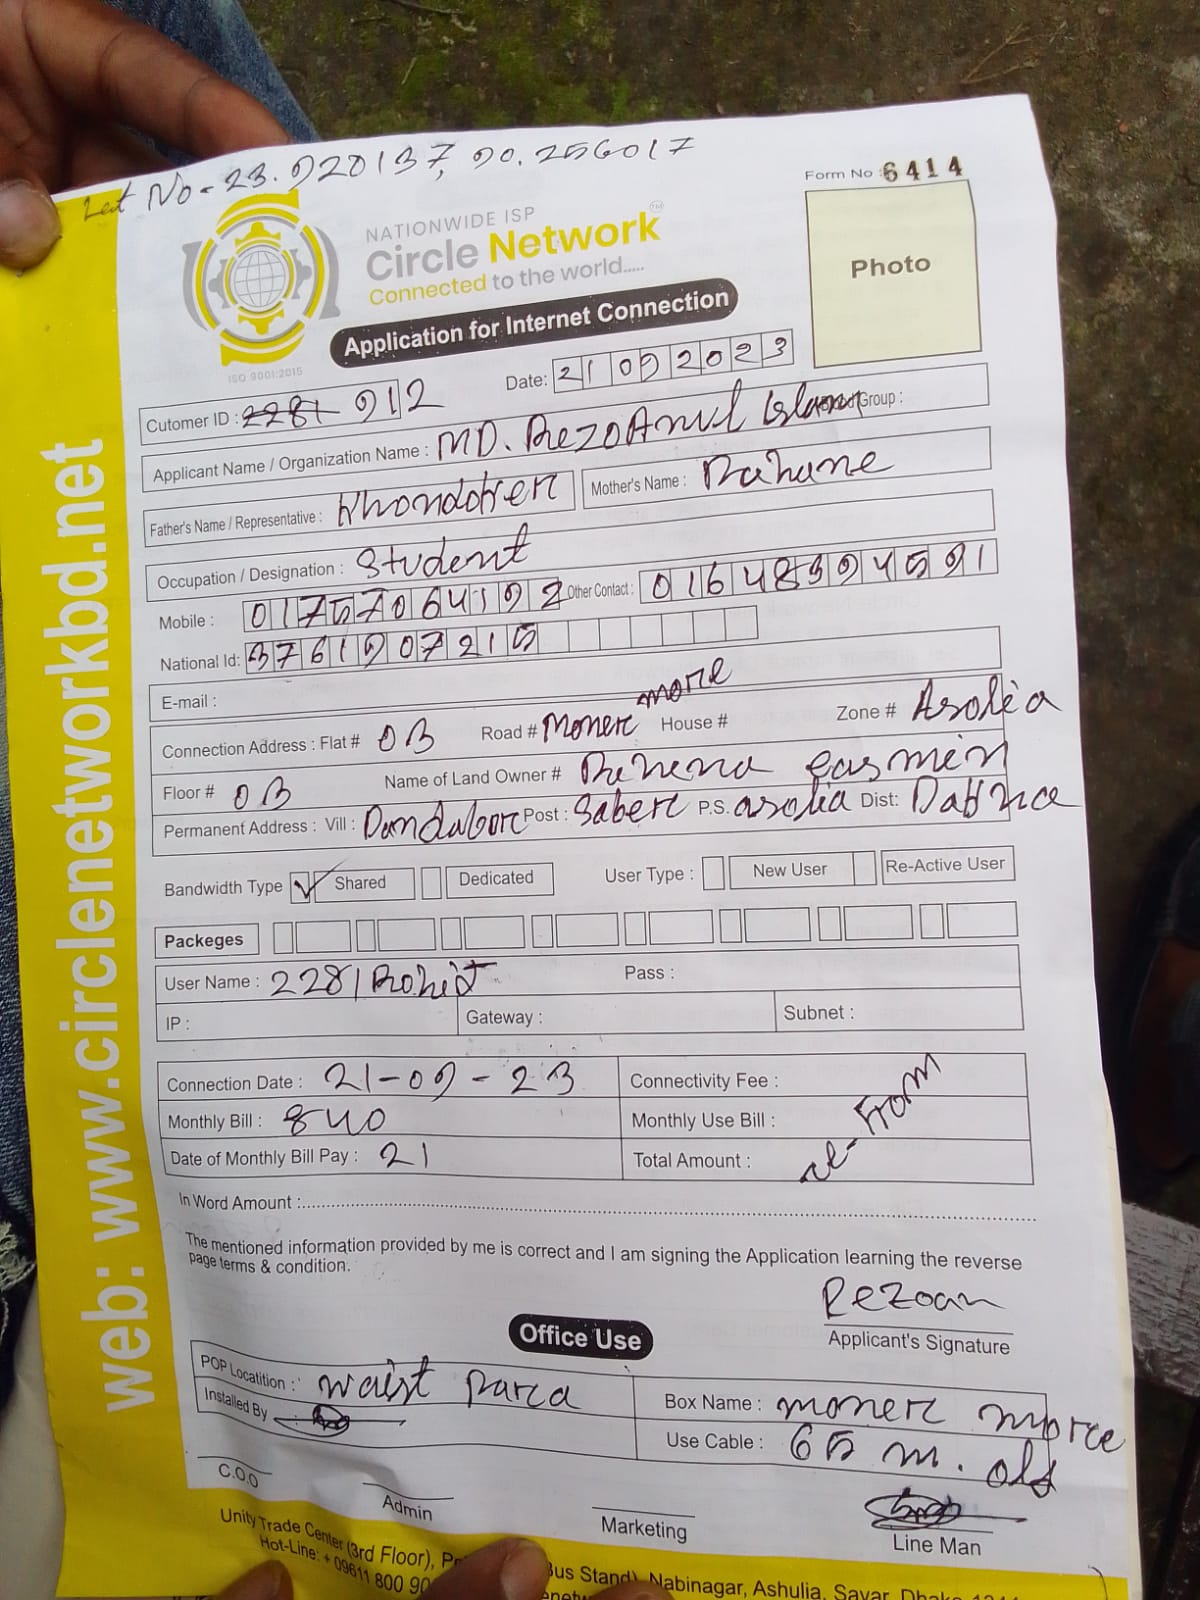 Lat No - 23.920137, 90.256017
Form No : 6414
NATIONWIDE ISP
Circle Network TM
Connected to the world.....
ISO 9001:2015
Photo
Application for Internet Connection
Date: 21 09 2023
Cutomer ID : 2281 912
Applicant Name / Organization Name : MD. RezoAnul Islam Group :
Father's Name / Representative : Khondoker Mother's Name : Rahane
Occupation / Designation : Student
Mobile : 01757064192 Other Contact : 01648394591
National Id: 3761907215
E-mail :
Connection Address : Flat # 03 Road # Moner more House # Zone # Asolia
Floor # 03 Name of Land Owner # Rehena easmin
Permanent Address : Vill : Dandabor Post : Saber P.S. asolia Dist: Dakha
Bandwidth Type ✓ Shared Dedicated User Type : New User Re-Active User
Packeges
User Name : 2281Rohit Pass :
IP : Gateway : Subnet :
Connection Date : 21-09-23 Connectivity Fee :
Monthly Bill : 840 Monthly Use Bill :
Date of Monthly Bill Pay : 21 Total Amount :
re-From
In Word Amount :
The mentioned information provided by me is correct and I am signing the Application learning the reverse
page terms & condition.
Rezoan
Applicant's Signature
Office Use
POP Locatition : waist Para Box Name : moner more
Installed By : Use Cable : 65 m. old
C.O.O Admin Marketing Line Man
Unity Trade Center (3rd Floor), Bus Stand), Nabinagar, Ashulia, Savar, Dhaka
Hot-Line: + 09611 800 90
web: www.circlenetworkbd.net